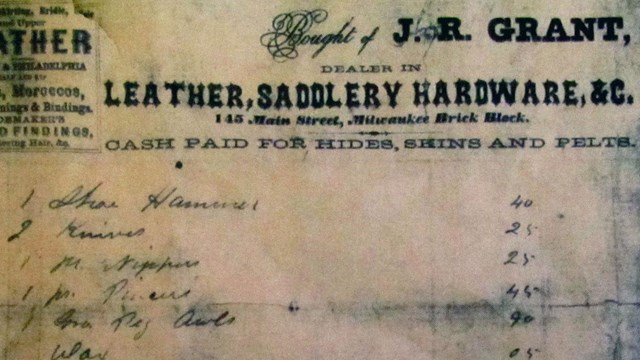 Skirting, Bridle,
and Upper
ATHER
& PHILADELPHIA
CALF AND KIP
, Moroccos,
nings & Bindings,
OEMAKER'S
D FINDINGS,
tering Hair, &c.
Bought of J. R. GRANT,
DEALER IN
LEATHER, SADDLERY HARDWARE, &C.
145 Main Street, Milwaukee Brick Block.
CASH PAID FOR HIDES, SKINS AND PELTS.
1 Shoe Hammer 40
2 Knives 25
1 pr. Nippers 25
1 pr. Pincers 45
1 Peg Awls 90
Wax 05